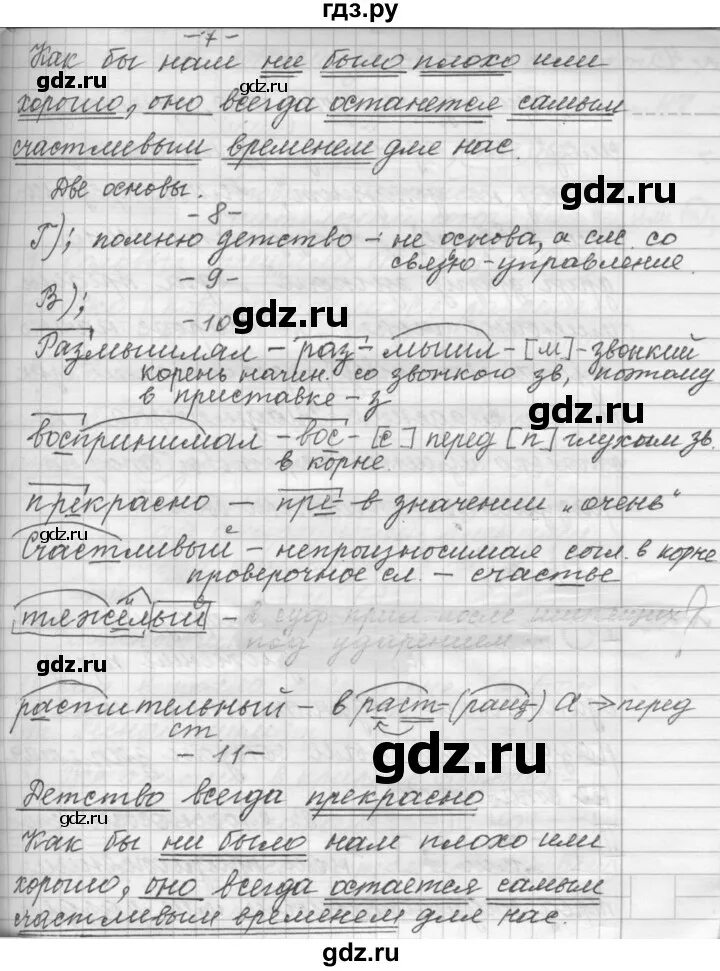 гдз.ру
-7-
Как бы нам ни было плохо или
хорошо, оно всегда останется самым
счастливым временем для нас.
Две основы.
-8-
Г); помню детство - не основа, а см. со
связью - управление.
-9-
В);
-10-
Размышлял - раз- мышл - [м] - звонкий
корень начин. со звонкого зв, поэтому
в приставке - з
воспринимал - вос - [с] перед [п] глухим зв.
в корне.
прекрасно - пре - в значении „очень"
Счастливый - непроизносимая согл. в корне
проверочное сл. - счастье
тяжёлый - в суф. прил. после шипящих
под ударением -
растительный - в раст - (ращ) а → перед
ст
-11-
Детство всегда прекрасно
Как бы ни было нам плохо или
хорошо, оно всегда остается самым
счастливым временем для нас.
gdz.ru
gdz.ru
gdz.ru
gdz.ru
gdz.ru
gdz.ru
gdz.ru
gdz.ru
gdz.ru
gdz.ru
gdz.ru
gdz.ru
gdz.ru